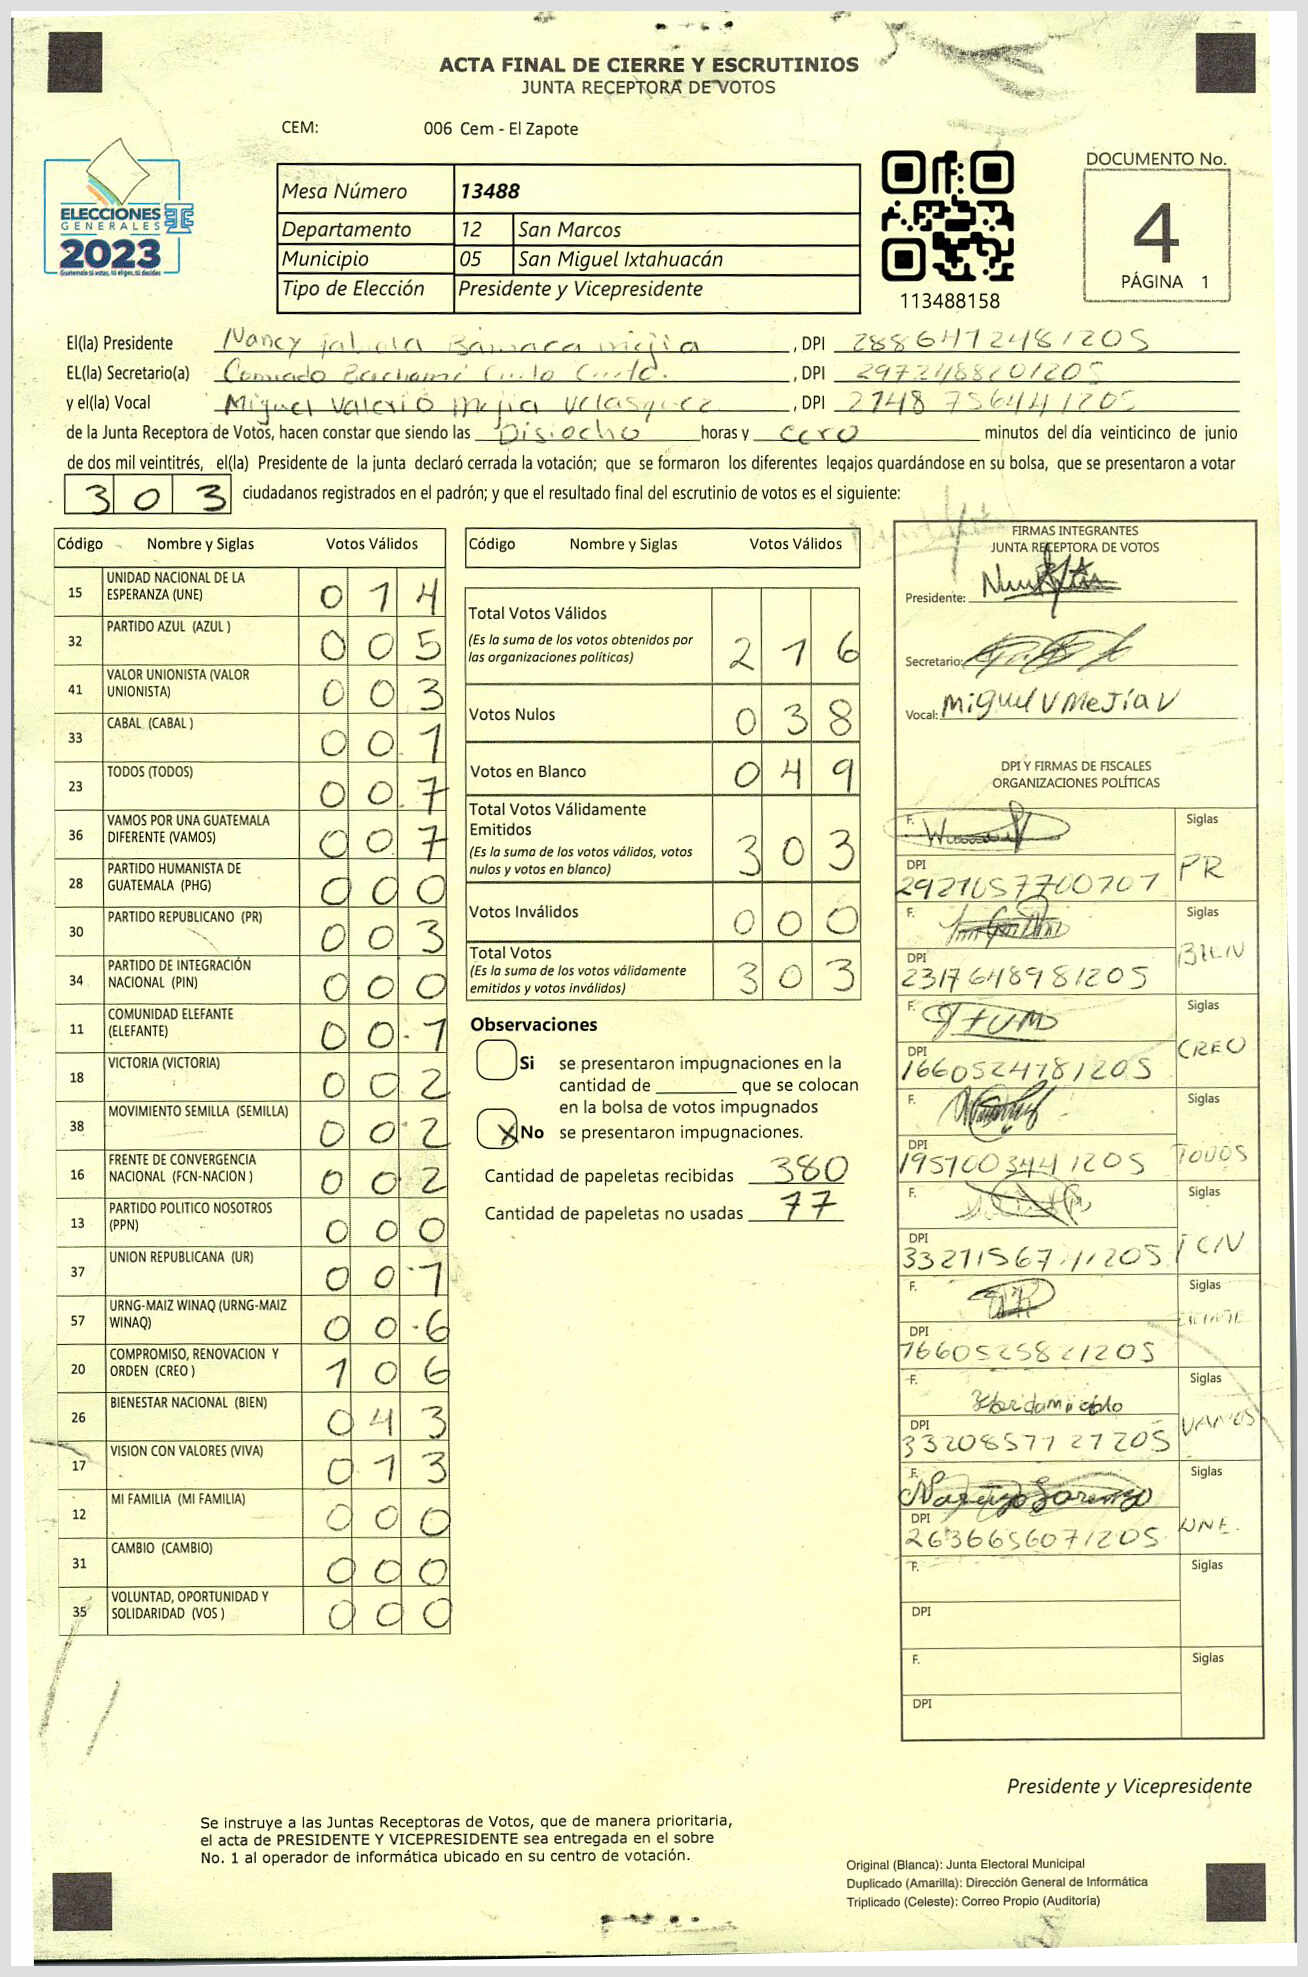 ACTA FINAL DE CIERRE Y ESCRUTINIOS
JUNTA RECEPTORA DE VOTOS
CEM: 006 Cem - El Zapote
ELECCIONES
GENERALES
2023
Guatemala tú votas, tú eliges, tú decides
Mesa Número 13488
Departamento 12 San Marcos
Municipio 05 San Miguel Ixtahuacán
Tipo de Elección Presidente y Vicepresidente
113488158
DOCUMENTO No.
4
PÁGINA 1
El(la) Presidente Nancy Bámaca Mejia , DPI 2886472481205
EL(la) Secretario(a) , DPI 2972488201205
y el(la) Vocal Miguel Valerio Mejia Velasquez , DPI 2748756441205
de la Junta Receptora de Votos, hacen constar que siendo las Disiocho horas y cero minutos del día veinticinco de junio
de dos mil veintitrés, el(la) Presidente de la junta declaró cerrada la votación; que se formaron los diferentes legajos guardándose en su bolsa, que se presentaron a votar
303 ciudadanos registrados en el padrón; y que el resultado final del escrutinio de votos es el siguiente:
Código Nombre y Siglas Votos Válidos
15 UNIDAD NACIONAL DE LA ESPERANZA (UNE) 014
32 PARTIDO AZUL (AZUL ) 005
41 VALOR UNIONISTA (VALOR UNIONISTA) 003
33 CABAL (CABAL ) 001
23 TODOS (TODOS) 007
36 VAMOS POR UNA GUATEMALA DIFERENTE (VAMOS) 007
28 PARTIDO HUMANISTA DE GUATEMALA (PHG) 000
30 PARTIDO REPUBLICANO (PR) 003
34 PARTIDO DE INTEGRACIÓN NACIONAL (PIN) 000
11 COMUNIDAD ELEFANTE (ELEFANTE) 001
18 VICTORIA (VICTORIA) 002
38 MOVIMIENTO SEMILLA (SEMILLA) 002
16 FRENTE DE CONVERGENCIA NACIONAL (FCN-NACION ) 002
13 PARTIDO POLITICO NOSOTROS (PPN) 000
37 UNION REPUBLICANA (UR) 001
57 URNG-MAIZ WINAQ (URNG-MAIZ WINAQ) 006
20 COMPROMISO, RENOVACION Y ORDEN (CREO ) 106
26 BIENESTAR NACIONAL (BIEN) 043
17 VISION CON VALORES (VIVA) 013
12 MI FAMILIA (MI FAMILIA) 000
31 CAMBIO (CAMBIO) 000
35 VOLUNTAD, OPORTUNIDAD Y SOLIDARIDAD (VOS ) 000
Código Nombre y Siglas Votos Válidos
Total Votos Válidos 216
(Es la suma de los votos obtenidos por
las organizaciones políticas)
Votos Nulos 038
Votos en Blanco 049
Total Votos Válidamente
Emitidos 303
(Es la suma de los votos válidos, votos
nulos y votos en blanco)
Votos Inválidos 000
Total Votos 303
(Es la suma de los votos válidamente
emitidos y votos inválidos)
Observaciones
Si se presentaron impugnaciones en la
cantidad de ________ que se colocan
en la bolsa de votos impugnados
X No se presentaron impugnaciones.
Cantidad de papeletas recibidas 380
Cantidad de papeletas no usadas 77
FIRMAS INTEGRANTES
JUNTA RECEPTORA DE VOTOS
Presidente:
Secretario:
Vocal: Miguel V Mejía V
DPI Y FIRMAS DE FISCALES
ORGANIZACIONES POLÍTICAS
F. Siglas PR
DPI 2921057700701
F. Siglas BIEN
DPI 2317648981205
F. Siglas CREO
DPI 1660524781205
F. Siglas TODOS
DPI 1951003441205
F. Siglas FCN
DPI
F. Siglas
DPI 1660525821205
F. Siglas VAMOS
DPI 3320857721205
F. Narcizo Lorenzo Siglas UNE.
DPI 2636656071205
F. Siglas
DPI
F. Siglas
DPI
Presidente y Vicepresidente
Se instruye a las Juntas Receptoras de Votos, que de manera prioritaria,
el acta de PRESIDENTE Y VICEPRESIDENTE sea entregada en el sobre
No. 1 al operador de informática ubicado en su centro de votación.
Original (Blanca): Junta Electoral Municipal
Duplicado (Amarilla): Dirección General de Informática
Triplicado (Celeste): Correo Propio (Auditoría)